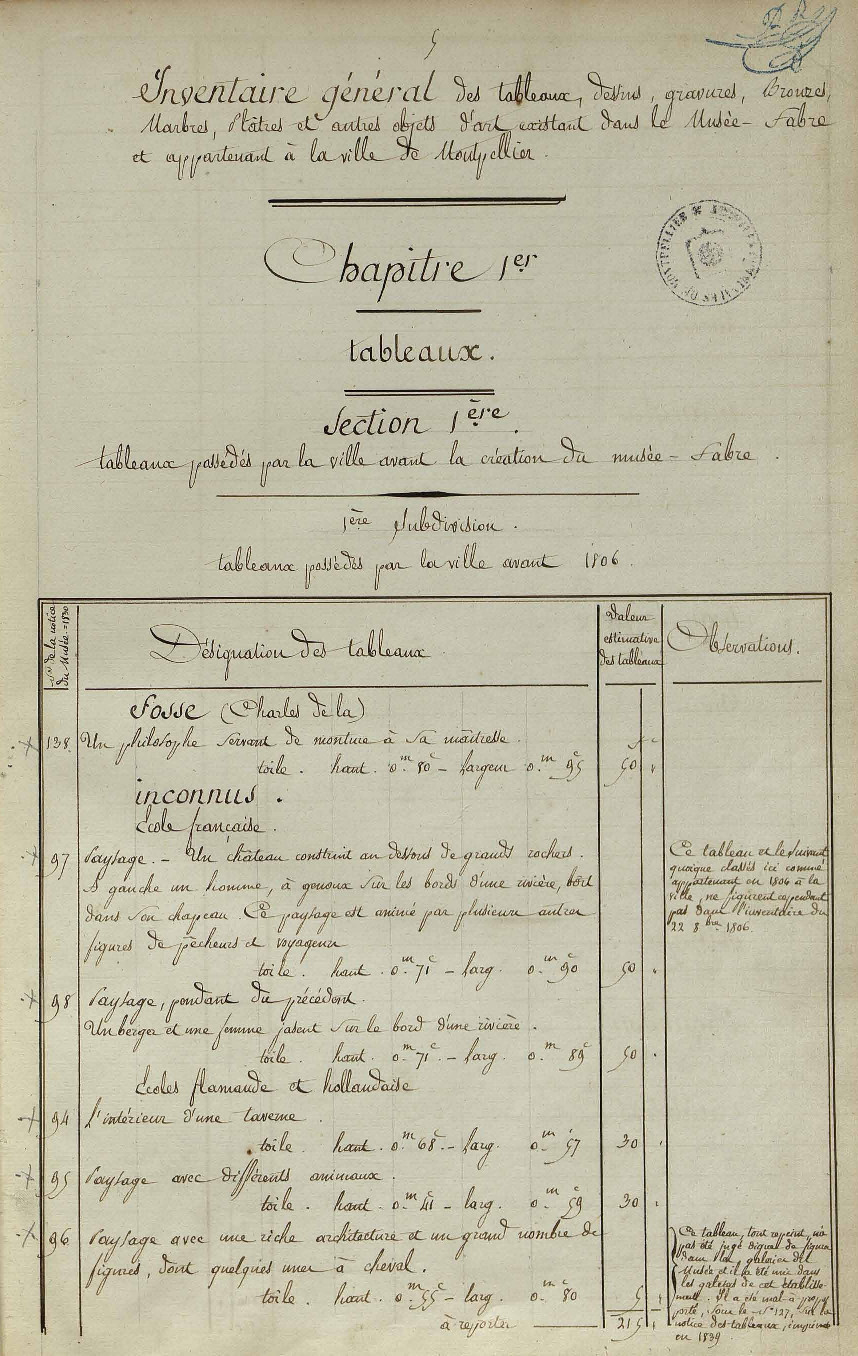 5
Inventaire général des tableaux, dessins, gravures, Bronzes,
Marbres, Plâtres et autres objets d'art existant dans le Musée-Fabre
et appartenant à la ville de Montpellier.
Chapitre 1er
tableaux.
Section 1ère.
tableaux possédés par la ville avant la création du musée-Fabre.
1ère Subdivision.
tableaux possédés par la ville avant 1806.
No de la notice
du Musée = 1830
Désignation des tableaux
Valeur
estimative
des tableaux
Observations.
Fosse (Charles de la)
138. Un philosophe servant de monture à sa maîtresse.
toile. haut. 0m 80c - Largeur 0m 95c 50 "
inconnus.
École française.
97 Paysage. - Un château construit au dessous de grands rochers.
À gauche un homme, à genoux sur les bords d'une rivière, boit
dans son chapeau. Ce paysage est animé par plusieurs autres
figures de pêcheurs et voyageurs
toile. haut. 0m 71c - larg. 0m 90c 50 "
Ce tableau et le suivant
quoique classés ici comme
appartenant en 1806 à la
ville, ne figurent cependant
pas dans l'inventaire du
22 8bre 1806.
98 Paysage, pendant du précédent.
Un berger et une femme jasent sur le bord d'une rivière.
toile. haut. 0m 71c - larg. 0m 89c 50 "
Écoles flamande et hollandaise
94 L'intérieur d'une taverne.
toile. haut. 0m 68c - larg. 0m 57c 30 "
95 Paysage avec différents animaux.
toile. haut. 0m 41c - larg. 0m 59c 30 "
96 Paysage avec une riche architecture et un grand nombre de
figures, dont quelques unes à cheval.
toile. haut. 0m 55c - larg. 0m 80c 5 "
à reporter 215 "
Ce tableau, tout repeint, n'a
pas été jugé digne de figurer
dans la galerie du
Musée et il a été mis dans
les galetas de cet établisse-
ment. Il a été mal à propos
porté, sous le No 127, sur la
notice des tableaux, imprimée
en 1839.